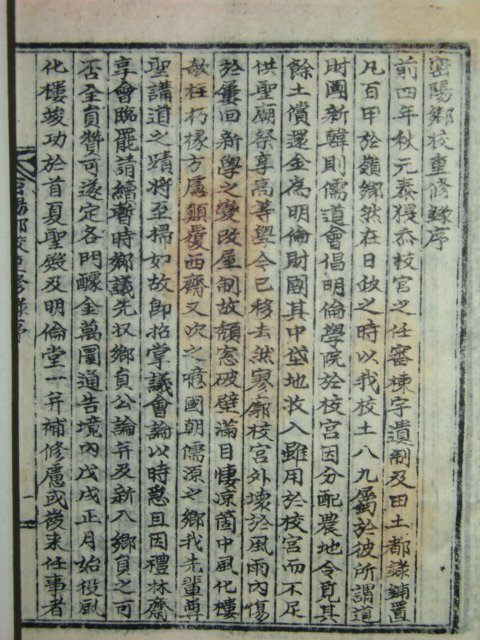 密陽鄕校重修錄序
前四年秋元泰猥忝校宮之任審棟宇遺制及田土都錄鋪置
凡百甲於嶺鄕然在日政之時以我校土八九屬於彼所謂道
財團新韓則儒道會倡明倫學院於校宮因分配農地令覓其
餘土償還金爲明倫財團其中垈地收入雖用於校宮而不足
供聖廟祭享高等學令已移去然寥廓校宮外壞於風雨內傷
於屢回新學之變改屋制故頹窓破壁滿目悽凉箇中風化樓
敧柱朽椽方虞顚覆西齋又次之噫國朝儒源之鄕我先輩尊
聖講道之蹟將至掃如故卽招掌議會論以時急且因禮林齋
享會臨罷請續暫時鄕議先以鄕員公論弁及新入鄕員之可
否全員贊可遂定各門醵金萬圜通告境內戊戌正月始役風
化樓竣功於首夏聖殿及明倫堂一弁補修慮或後來任事者
密陽鄕校重修錄序
一